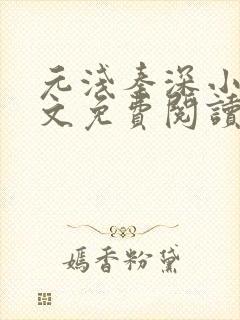 元浅秦深小
文免費閱讀
嫣香粉黛